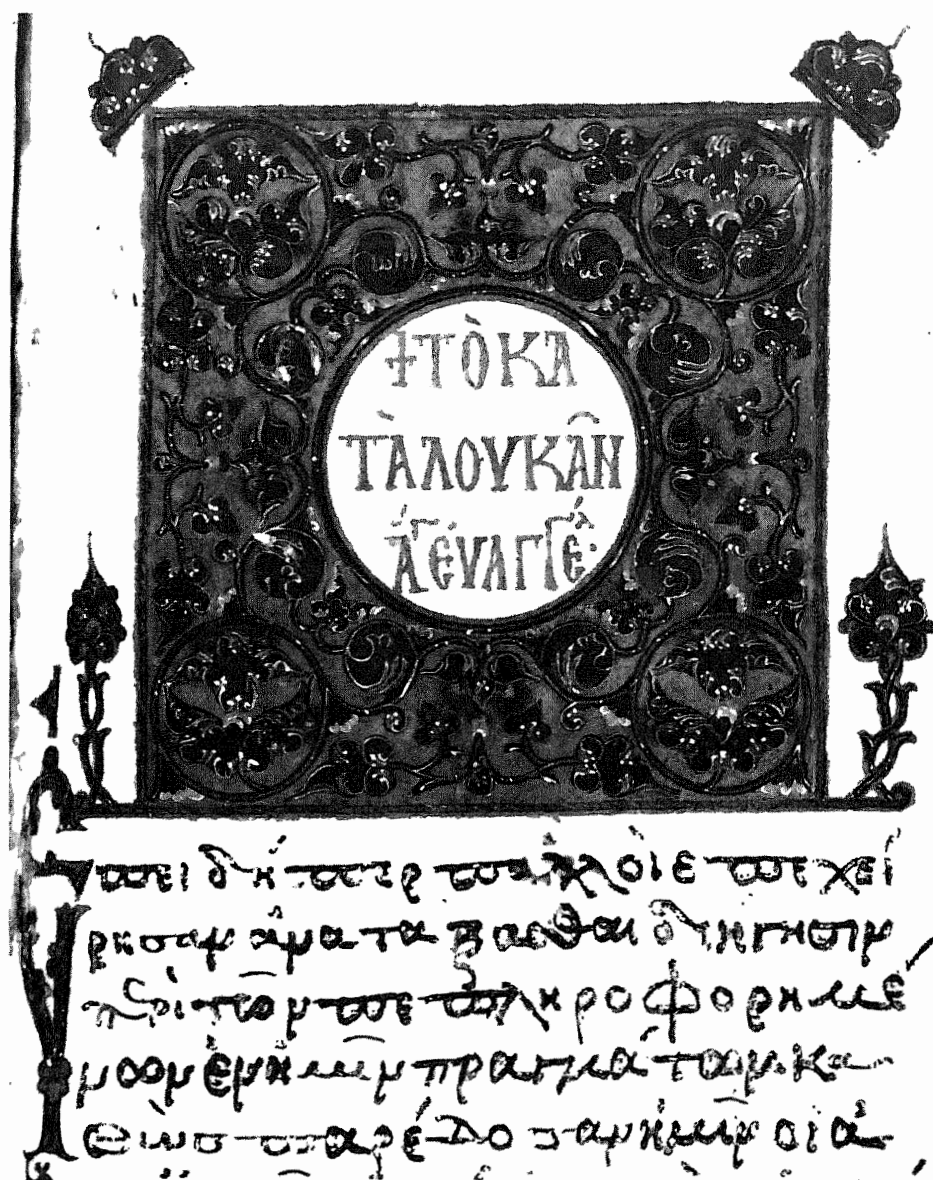 ☩ ΤὸΚΑ
ΤᾺΛΟΥΚᾶΝ
ἅγ ἐυαγγέ·
Ἐπειδήπερ πολλοὶ ἐπεχεί
ρησαν ἀνατάξασθαι διήγησιν
περὶ τῶν πεπληροφορημέ
νων ἐν ἡμῖν πραγμάτων· κα
θὼς παρέδοσαν ἡμῖν οἱ ἀ